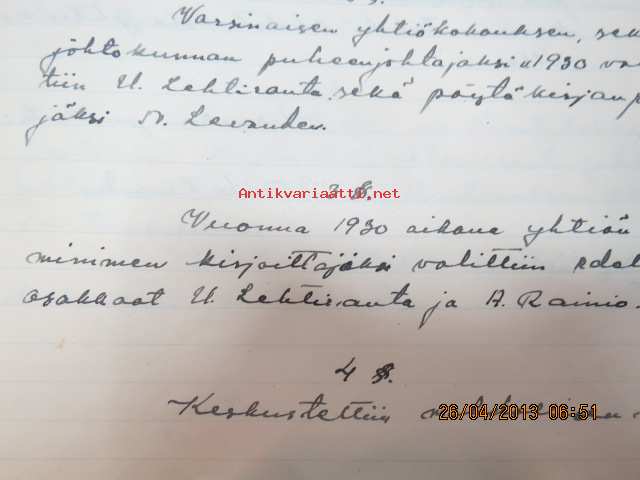 Varsinaisen yhtiökokouksen, sek
johtokunnan puheenjohtajaksi v1930 val
tiin U. Lehtiranta sekä pöytäkirjan p
jäksi
3 §.
Antikvariaatti.net
Vuonna 1930 aikana yhtiön
nimimen kirjoittajaksi valittiin edel
osakkaat U. Lehtiranta ja A. Rainio.
4 §.
Keskustettiin
26/04/2013 06:51